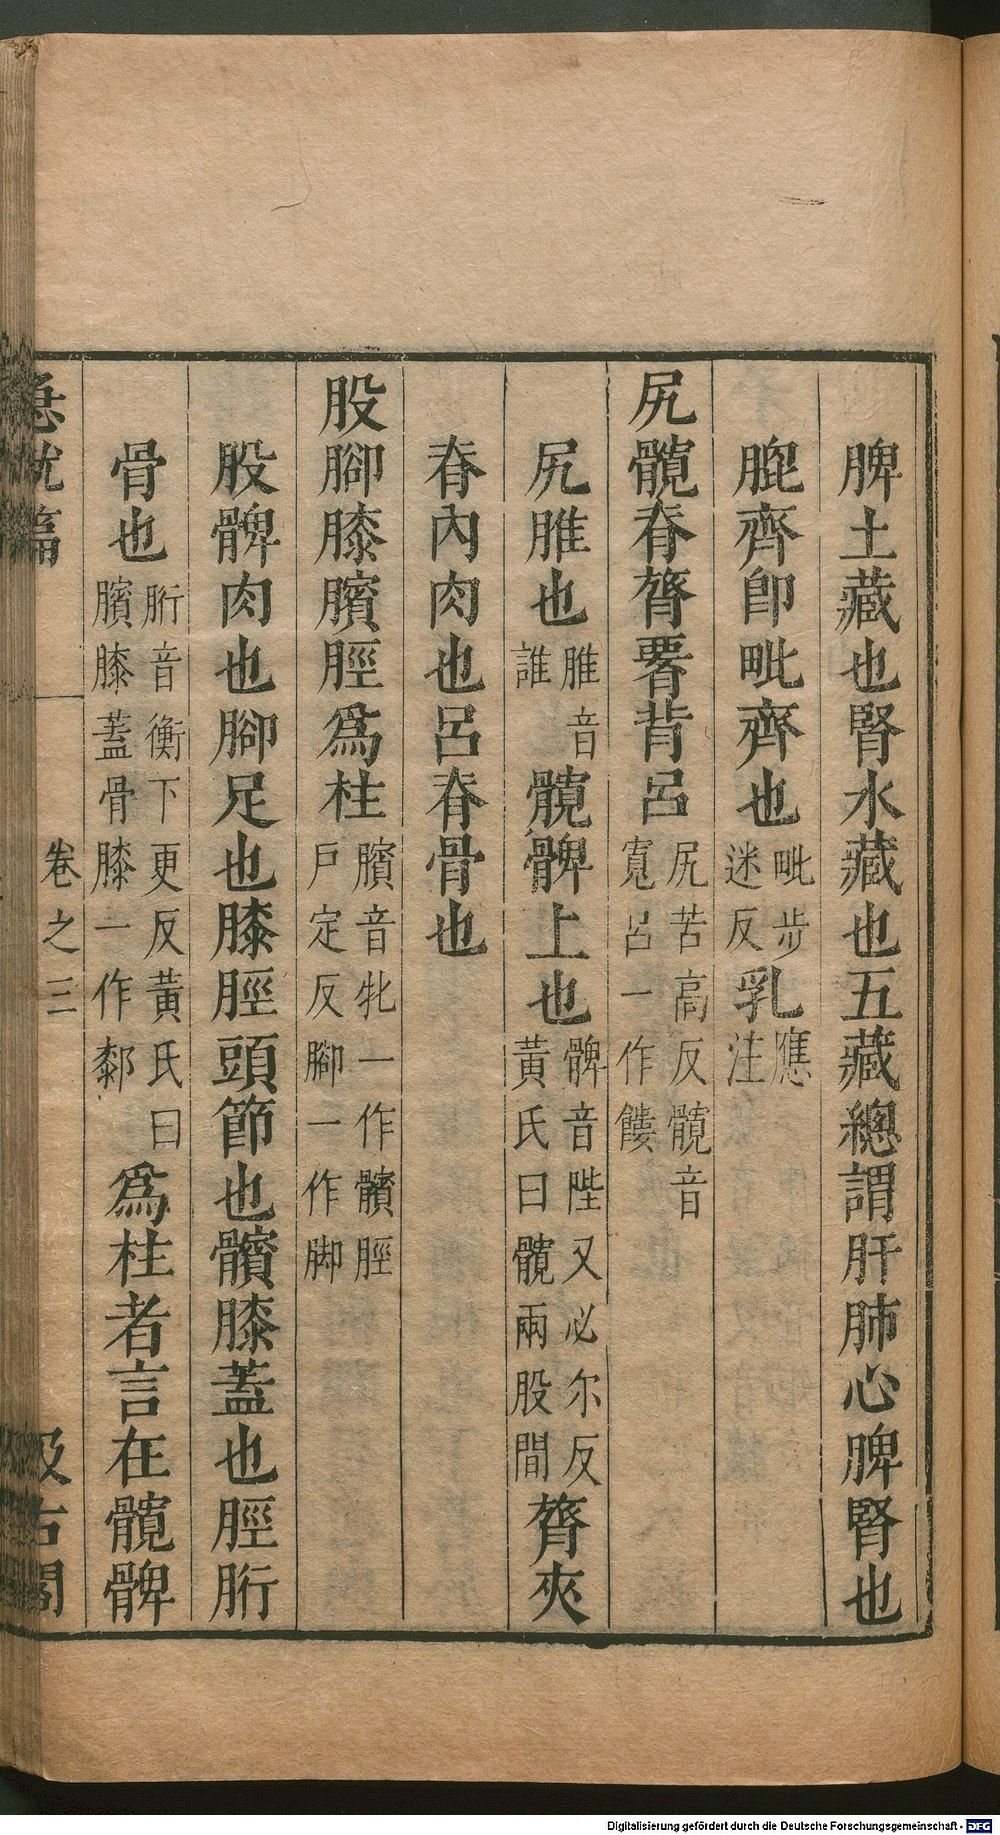 脾土藏也腎水藏也五藏總謂肝肺心脾腎也
膍齊卽毗齊也毗步迷反乳應注
尻髖脊膂䙅背呂尻苦高反髖音寛呂一作膢
尻脽也脽音誰髖髀上也髀音陛又必尔反黃氏曰髖兩股間膂夾
脊內肉也呂脊骨也
股腳膝臏脛爲柱臏音牝一作髕脛戶定反腳一作脚
股髀肉也腳足也膝脛頭節也髕膝蓋也脛胻
骨也胻音衡下更反黃氏曰臏膝蓋骨膝一作厀爲柱者言在髖髀
急就篇 卷之三 汲古閣
Digitalisierung gefördert durch die Deutsche Forschungsgemeinschaft - DFG